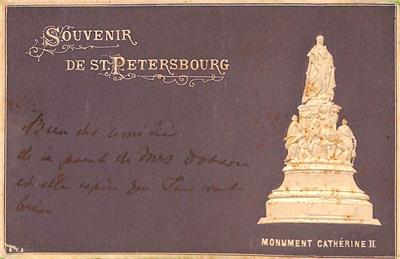 SOUVENIR
DE ST. PETERSBOURG
Bien des amitiés
de la part de Mrs
et elle espère que
bien
MONUMENT CATHÉRINE II